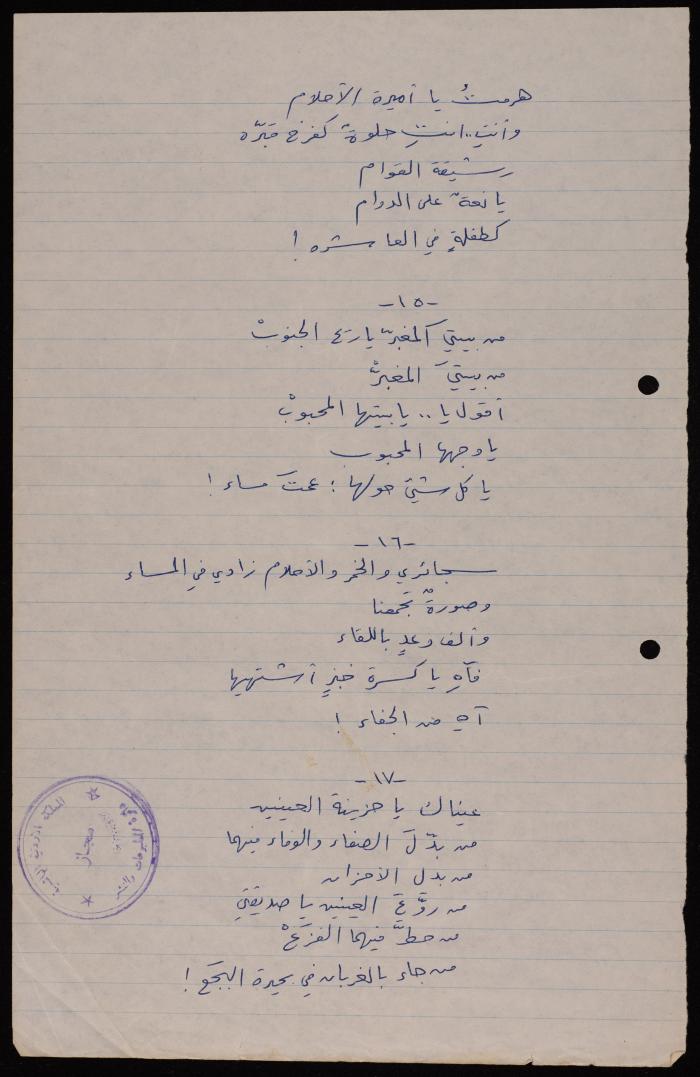 هرمتُ يا أميرة الأحلام
وأنتِ.. انتِ حلوةٌ كفرخ قبّره
رشيقة القوام
يانعةٌ على الدوام
كطفلةٍ في العاشره !
-١٥-
من بيتيَ المغبرّ يا ريح الجنوبْ
من بيتيَ المغبرّْ
أقول يا .. يا بيتها المحبوبْ
يا وجهها المحبوب
يا كل شيئ حولها : عمتَ مساء !
-١٦-
سجائري والخمر والأحلام زادي في المساء
وصورةٌ تجمعنا
وألف وعدٍ باللقاء
فآهِ يا كسرة خبزٍ أشتهيها
آهِ من الجفاء !
-١٧-
عيناك يا حزينة العينين
من بدّلَ الصفاء والوفاء فيهما
من بدل الأحزان
من روّعَ العينين يا صديقتي
من حطَّ فيهما الفزَعْ
من جاء بالغربان في بحيرة البجَع !
المملكة الأردنية الهاشمية
مجاز
المطبوعات والنشر